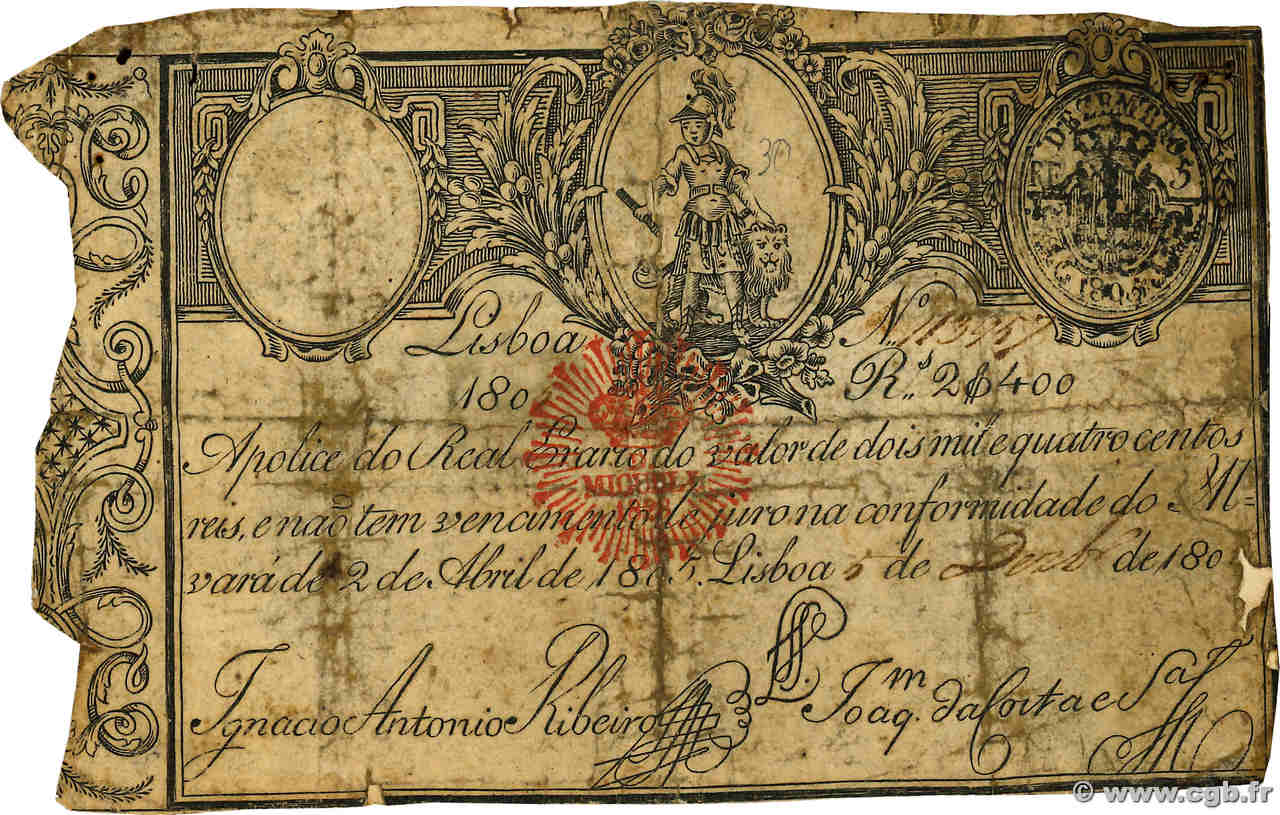 DEZEMBRO 5
1805
30
Lisboa
N.o
180
R.s 2$400
Apolice do Real Erario do valor de dois mil e quatro centos
MIGUEL I
reis, e naõ tem vencimento de juro na conformidade do Al-
vará de 2 de Abril de 1805. Lisboa 5 de Dezbr de 180
Ignacio Antonio Ribeiro
Joaq.m da Costa e Sa
© www.cgb.fr